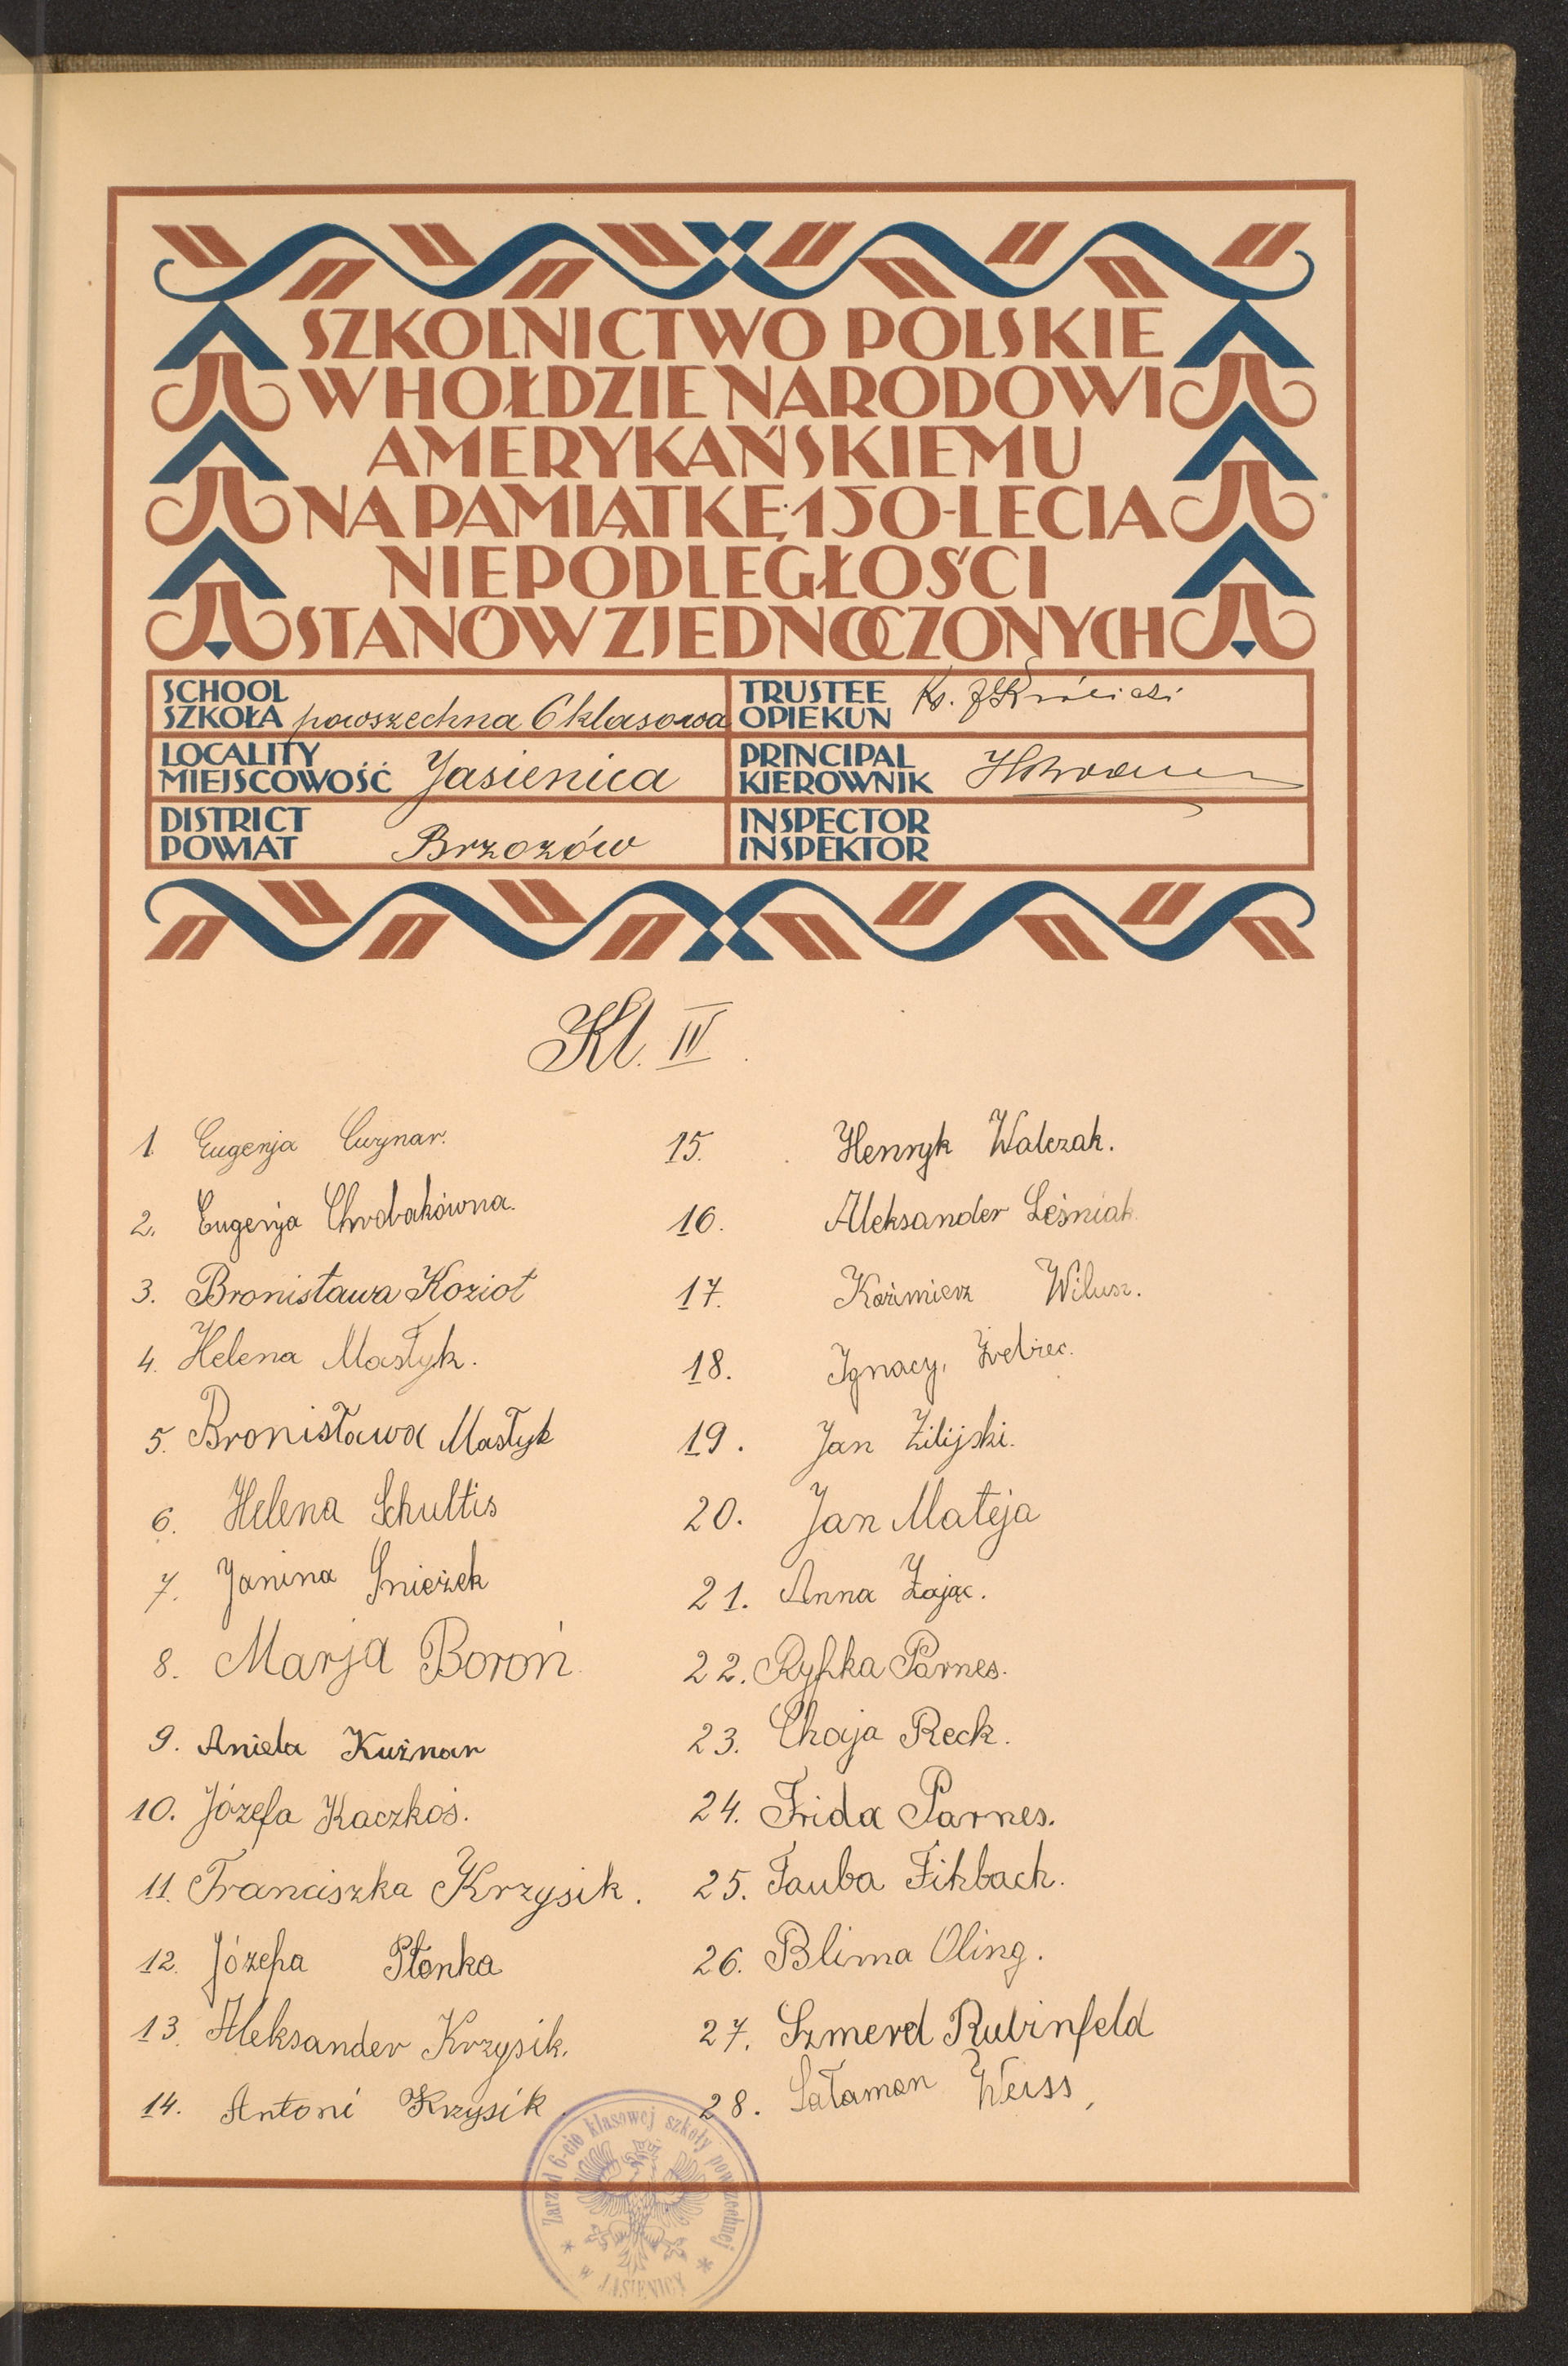 SZKOLNICTWO POLSKIE
W HOŁDZIE NARODOWI
AMERYKAŃSKIEMU
NA PAMIĄTKĘ·150-LECIA
NIEPODLEGŁOŚCI
STANÓW ZJEDNOCZONYCH
SCHOOL
SZKOŁA powszechna 6 klasowa
TRUSTEE
OPIEKUN Ks.
LOCALITY
MIEJSCOWOŚĆ Jasienica
PRINCIPAL
KIEROWNIK
DISTRICT
POWIAT Brzozów
INSPECTOR
INSPEKTOR
Kl. IV.
1. Eugenja Cwynar.
2. Eugenja Chrobakówna.
3. Bronisława Kozioł
4. Helena Masłyk.
5. Bronisława Masłyk
6. Helena Schultis
7. Janina Śnieżek
8. Marja Boroń.
9. Aniela Kuźnar
10. Józefa Kaczkoś.
11. Franciszka Krzysik.
12. Józefa Płonka
13. Aleksander Krzysik.
14. Antoni Krzysik.
15. Henryk Walczak.
16. Aleksander Leśniak.
17. Kaźimierz Wilusz.
18. Ignacy, Źrebiec.
19. Jan Żilijski.
20. Jan Mateja
21. Anna Zając.
22. Ryfka Parnes.
23. Chaja Reck.
24. Frida Parnes.
25. Tauba Fihbach.
26. Blima Oling.
27. Szmerd Rubinfeld
28. Sałamon Weiss,
Zarząd 6-cio klasowej szkoły powszechnej
* w JASIENICY *